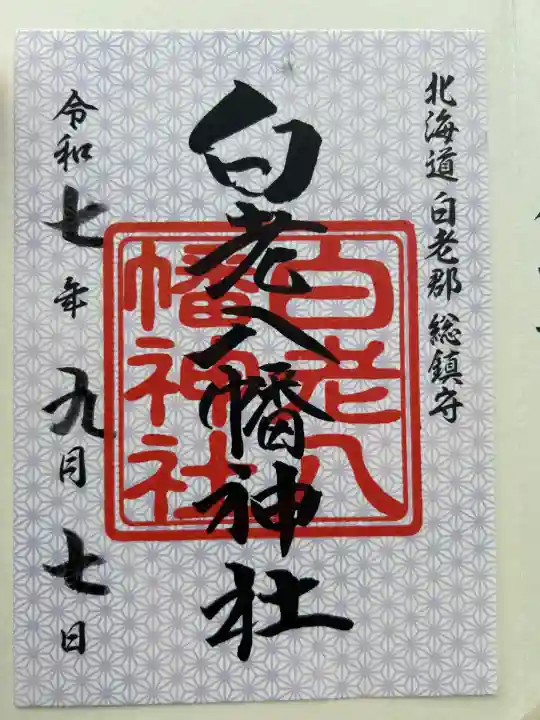 北海道白老郡総鎮守
白老八幡神社
白老八
幡神社
令和七年九月七日